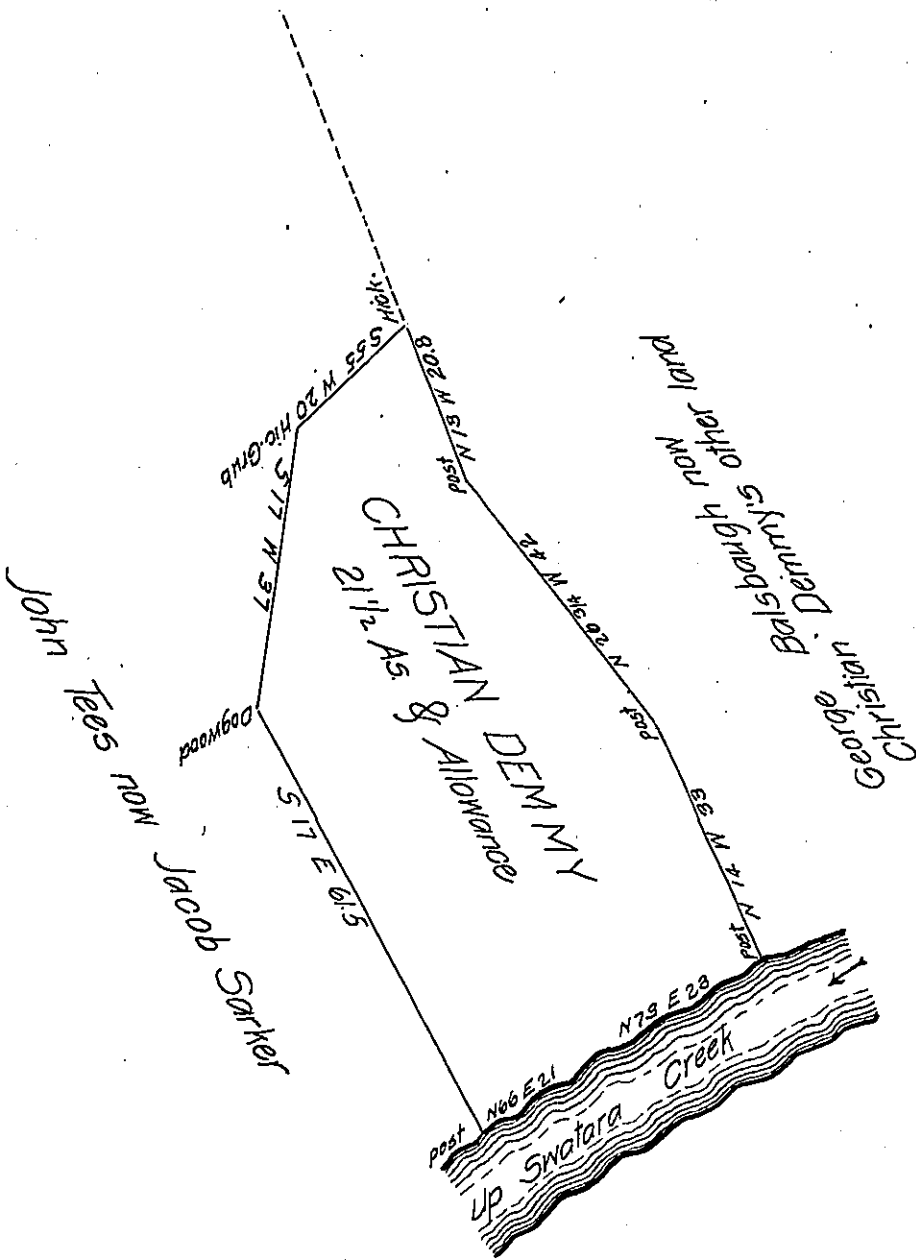 CHRISTIAN DEMMY
21 1/2 As. & Allowance
George Balsbaugh now
Christian Demmy's other land
John Tees now Jacob Sarker
up Swatara Creek
Hick.
S 55 W 20
Hic. Grub
S 17 W 37
Dogwood
S 17 E 61.5
post
N66 E 21
N73 E 23
Post
N 14 W 33
Post
N 26 3/4 W 42
Post
N 13 W 20.8